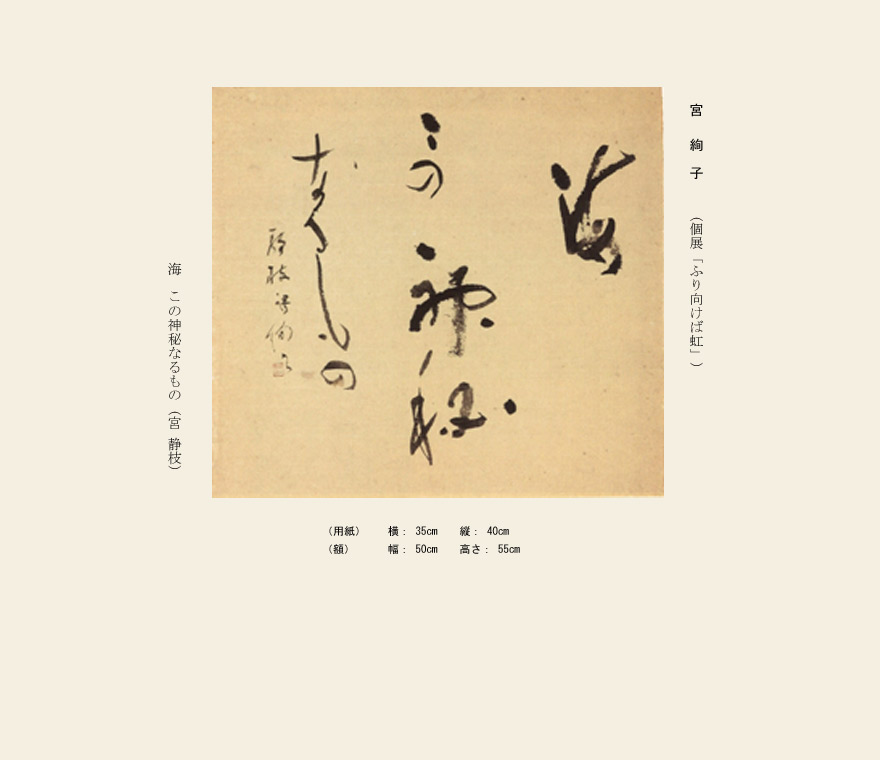 宮 絢子 （個展「ふり向けば虹」）
海
この神秘
なるもの
静枝詩 絢子
海 この神秘なるもの（宮 静枝）
（用紙） 横： 35cm 縦： 40cm
（額） 幅： 50cm 高さ： 55cm